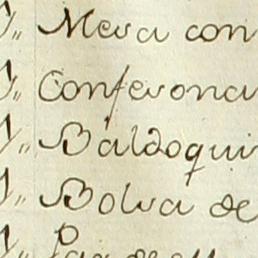 Mesa con
Confesona
Baldoqui
Bolsa de